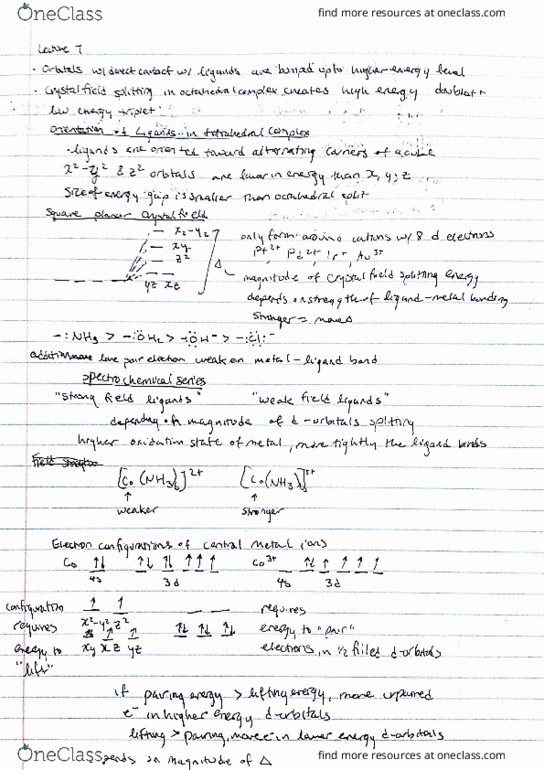 OneClass
find more resources at oneclass.com
Lecture 7
· Orbitals w/ direct contact w/ ligands are bumped up to higher energy level
· Crystal field splitting in octahedral complex creates high energy doublet +
low energy triplet
Orientation of Ligands in tetrahedral complex
· ligands are oriented toward alternating corners of a cube
x²-y² & z² orbitals are lower in energy than x, y, z
Size of energy gap is smaller than octahedral split
Square planar crystal field
x²-y²
xy
z²
yz xz
Δ
only form around cations w/ 8 d electrons
Pt²⁺, Pd²⁺, Ir⁺, Au³⁺
magnitude of crystal field splitting energy
depends on strength of ligand-metal bonding
stronger = more Δ
-:NH₃ > -:ÖH₂ > -:ÖH⁻ > -:Cl:⁻
additional lone pair electron weaken metal-ligand bond
Spectrochemical series
"Strong field ligands" "weak field ligands"
depending on magnitude of d-orbitals splitting
higher oxidation state of metal, more tightly the ligand binds
[Co(NH₃)₆]²⁺ [Co(NH₃)₆]³⁺
↑ ↑
weaker stronger
Electron configurations of central metal ions
Co ↑↓ ↑↓ ↑↓ ↑ ↑ ↑ Co³⁺ ↑↓ ↑ ↑ ↑ ↑
4s 3d 4s 3d
configuration ↑ ↑ requires
requires x²-y² z² ↑↓ ↑↓ ↑↓ energy to "pair"
energy to xy xz yz electrons in 1/2 filled d-orbitals
"lift"
if pairing energy > lifting energy, more unpaired
e⁻ in higher energy d-orbitals
lifting > pairing, more e⁻ in lower energy d-orbitals
on magnitude of Δ
OneClass
find more resources at oneclass.com